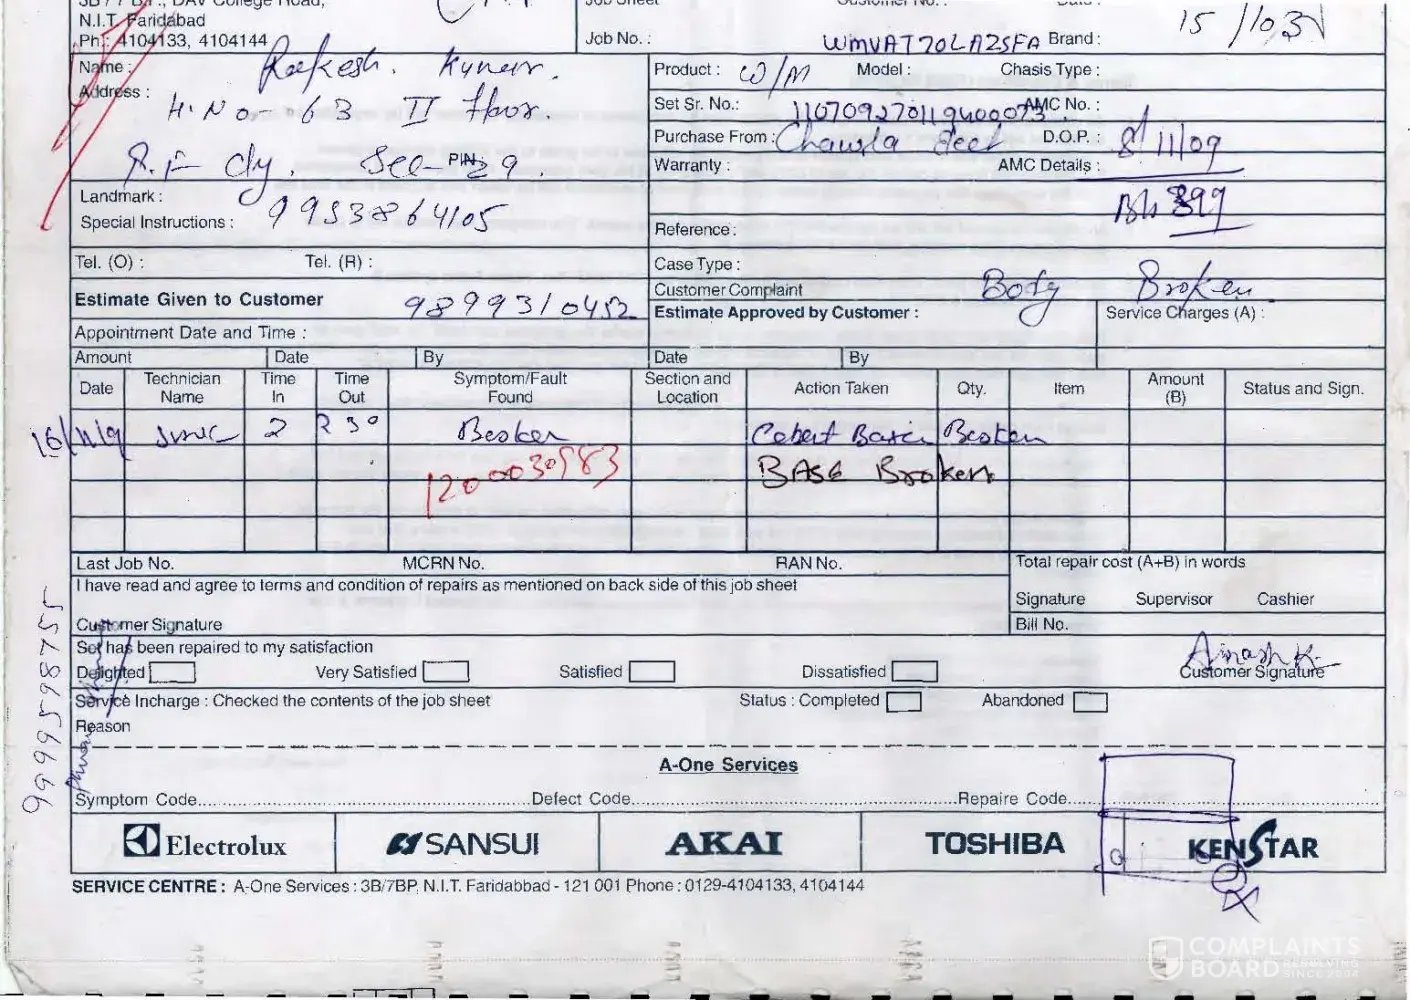 3B / 7 B.P., DAV College Road,
N.I.T. Faridabad
Ph.: 4104133, 4104144
Job Sheet
Job No. :
Customer No. :
Date :
15
WMVAT70LAZSFA Brand :
Name : Rakesh. Kumar.
Address : H. No- 63 II floor.
Sec- PIN: 29
Landmark :
Special Instructions : 9953864105
Product : W/M Model : Chasis Type :
Set Sr. No.: AMC No. :
Purchase From : Chawla D.O.P. : 8/11/09
Warranty : AMC Details :
Reference :
Tel. (O) : Tel. (R) :
Case Type :
Estimate Given to Customer 9899310452
Customer Complaint Body Broken
Estimate Approved by Customer : Service Charges (A) :
Appointment Date and Time :
Amount Date By Date By
Date Technician Name Time In Time Out Symptom/Fault Found Section and Location Action Taken Qty. Item Amount (B) Status and Sign.
16/11/9 2 2 30 Broken Broken
1200030983 BASE Broken
Last Job No. MCRN No. RAN No. Total repair cost (A+B) in words
I have read and agree to terms and condition of repairs as mentioned on back side of this job sheet
Signature Supervisor Cashier
Customer Signature
Bill No.
Set has been repaired to my satisfaction
Delighted Very Satisfied Satisfied Dissatisfied Customer Signature
Service Incharge : Checked the contents of the job sheet Status : Completed Abandoned
Reason
9999598755
A-One Services
Symptom Code Defect Code Repaire Code
Electrolux SANSUI AKAI TOSHIBA KENSTAR
SERVICE CENTRE : A-One Services : 3B/7BP, N.I.T. Faridabbad - 121 001 Phone : 0129-4104133, 4104144
COMPLAINTS
BOARD RESOLVING SINCE 2004